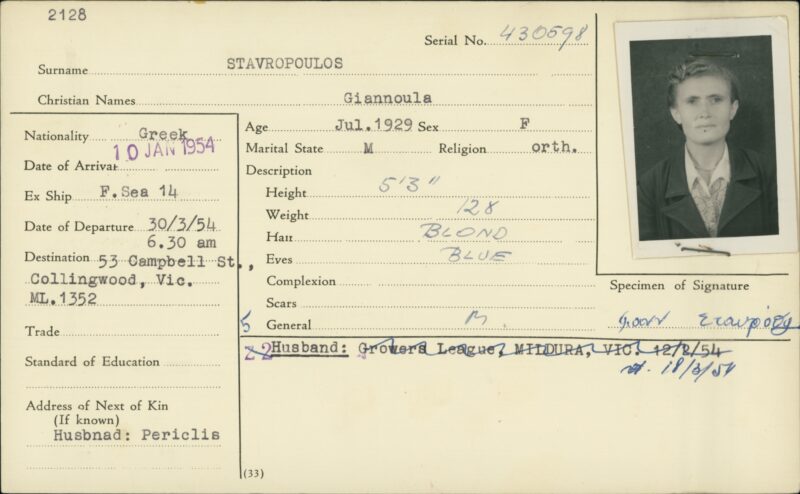 2128
Serial No. 430598
Surname STAVROPOULOS
Christian Names Giannoula
Nationality Greek
Date of Arrival 10 JAN 1954
Ex Ship F.Sea 14
Date of Departure 30/3/54
6.30 am
Destination 53 Campbell St.,
Collingwood, Vic.
ML.1352
Trade
Standard of Education
Address of Next of Kin
(If known)
Husbnad: Periclis
Age Jul.1929 Sex F
Marital State M Religion orth.
Description
Height 5'3"
Weight 128
Hair BLOND
Eyes BLUE
Complexion
Scars
5 General M.
Husband: Growers League, MILDURA, VIC. 12/2/54
18/3/54
(33)
Specimen of Signature